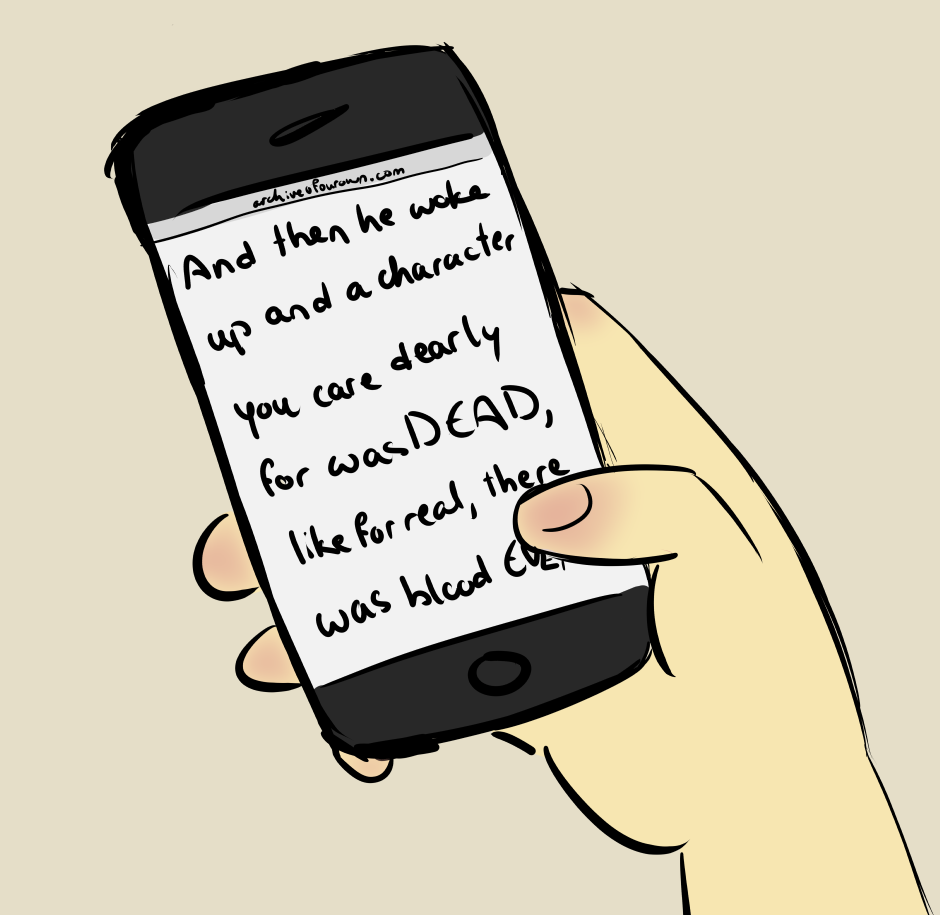 archiveofourown.com
And then he woke
up and a character
you care dearly
for was DEAD,
like for real, there
was blood